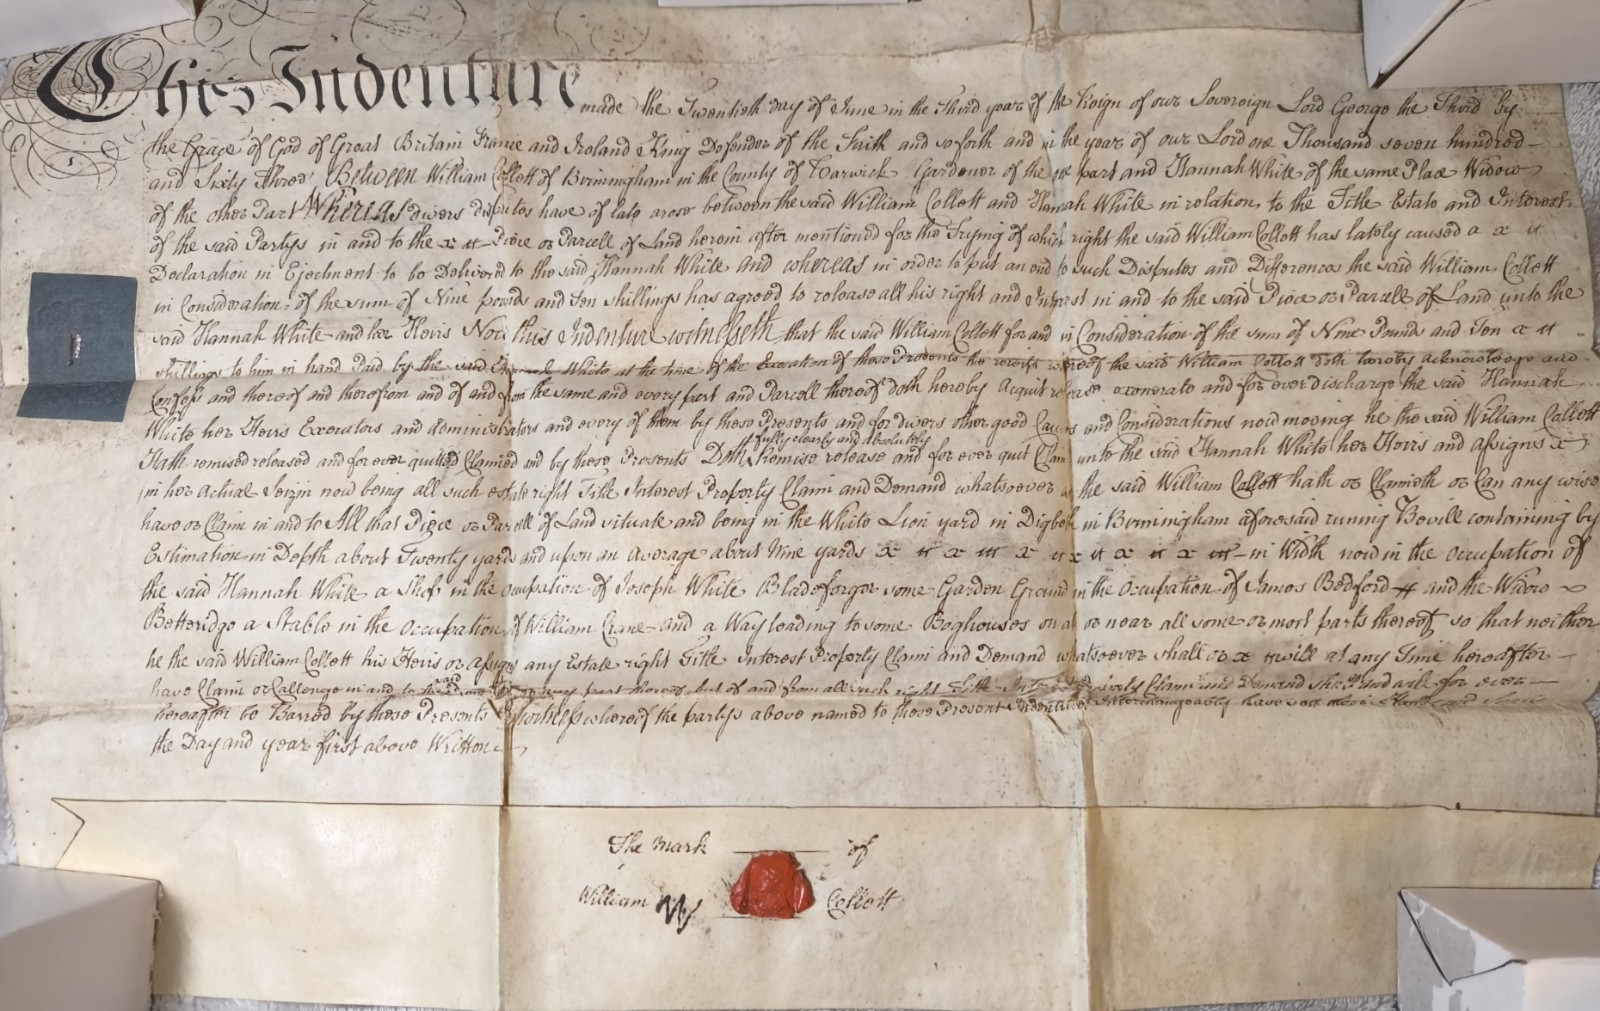 This Indenture made the Twentieth day of June in the Third year of the Reign of our Sovereign Lord George the Third by
the Grace of God of Great Britain France and Ireland King Defender of the Faith and so forth and in the year of our Lord one Thousand seven hundred
and Sixty Three Between William Collett of Birmingham in the County of Warwick Gardener of the one part and Hannah White of the same Place Widow
of the other Part Whereas divers disputes have of late arose between the said William Collett and Hannah White in relation to the Title Estate and Interest
of the said Partys in and to the Piece or Parcell of Land herein after mentioned for the Trying of which right the said William Collett has lately caused a
Declaration in Ejectment to be Delivered to the said Hannah White And whereas in order to put an end to such Disputes and Differences the said William Collett
in Consideration of the sum of Nine pounds and Ten shillings has agreed to release all his right and Interest in and to the said Piece or Parcell of Land unto the
said Hannah White and her Heirs Now this Indenture witnesseth that the said William Collett for and in Consideration of the sum of Nine Pounds and Ten
shillings to him in hand Paid by the said Hannah White at the time of the Execution of these Presents the receipt whereof the said William Collett doth hereby acknowledge and
Confess and thereof and therefrom and of and from the same and every part and Parcell thereof doth hereby Acquit release exonerate and for ever discharge the said Hannah
White her Heirs Executors and Administrators and every of them by these Presents and for divers other good Causes and Considerations now moving he the said William Collett
Hath remised released and for ever quitted Claimed and by these Presents Doth fully clearly and absolutely Remise release and for ever quit Claim unto the said Hannah White her Heirs and assigns
in her actual Seizin now being all such estate right Title Interest Property Claim and Demand whatsoever as the said William Collett hath or Claimeth or Can any wise
have or Claim in and to All that Piece or Parcell of Land situate and being in the White Lion yard in Digbeth in Birmingham aforesaid runing Bevill containing by
Estimation in Depth about Twenty yards and upon an Average about Nine yards in Width now in the occupation of
the said Hannah White a Shop in the occupation of Joseph White Bladeforger some Garden Ground in the Occupation of James Bedford and the Widow
Betteridge a Stable in the Occupation of William Crane and a Way leading to some Boghouses on all or near all some or most parts thereof so that neither
he the said William Collett his Heirs or assigns any Estate right Title Interest Property Claim and Demand whatsoever shall or will at any Time hereafter
have Claim or Callenge in and to the said or any part thereof but of and from all such right Title Claim and Demand shall and will for ever
hereafter be Barred by these Presents In witness whereof the partys above named to these Present Indentures Interchangeably have
the Day and year first above Written
The Mark of
William Collett